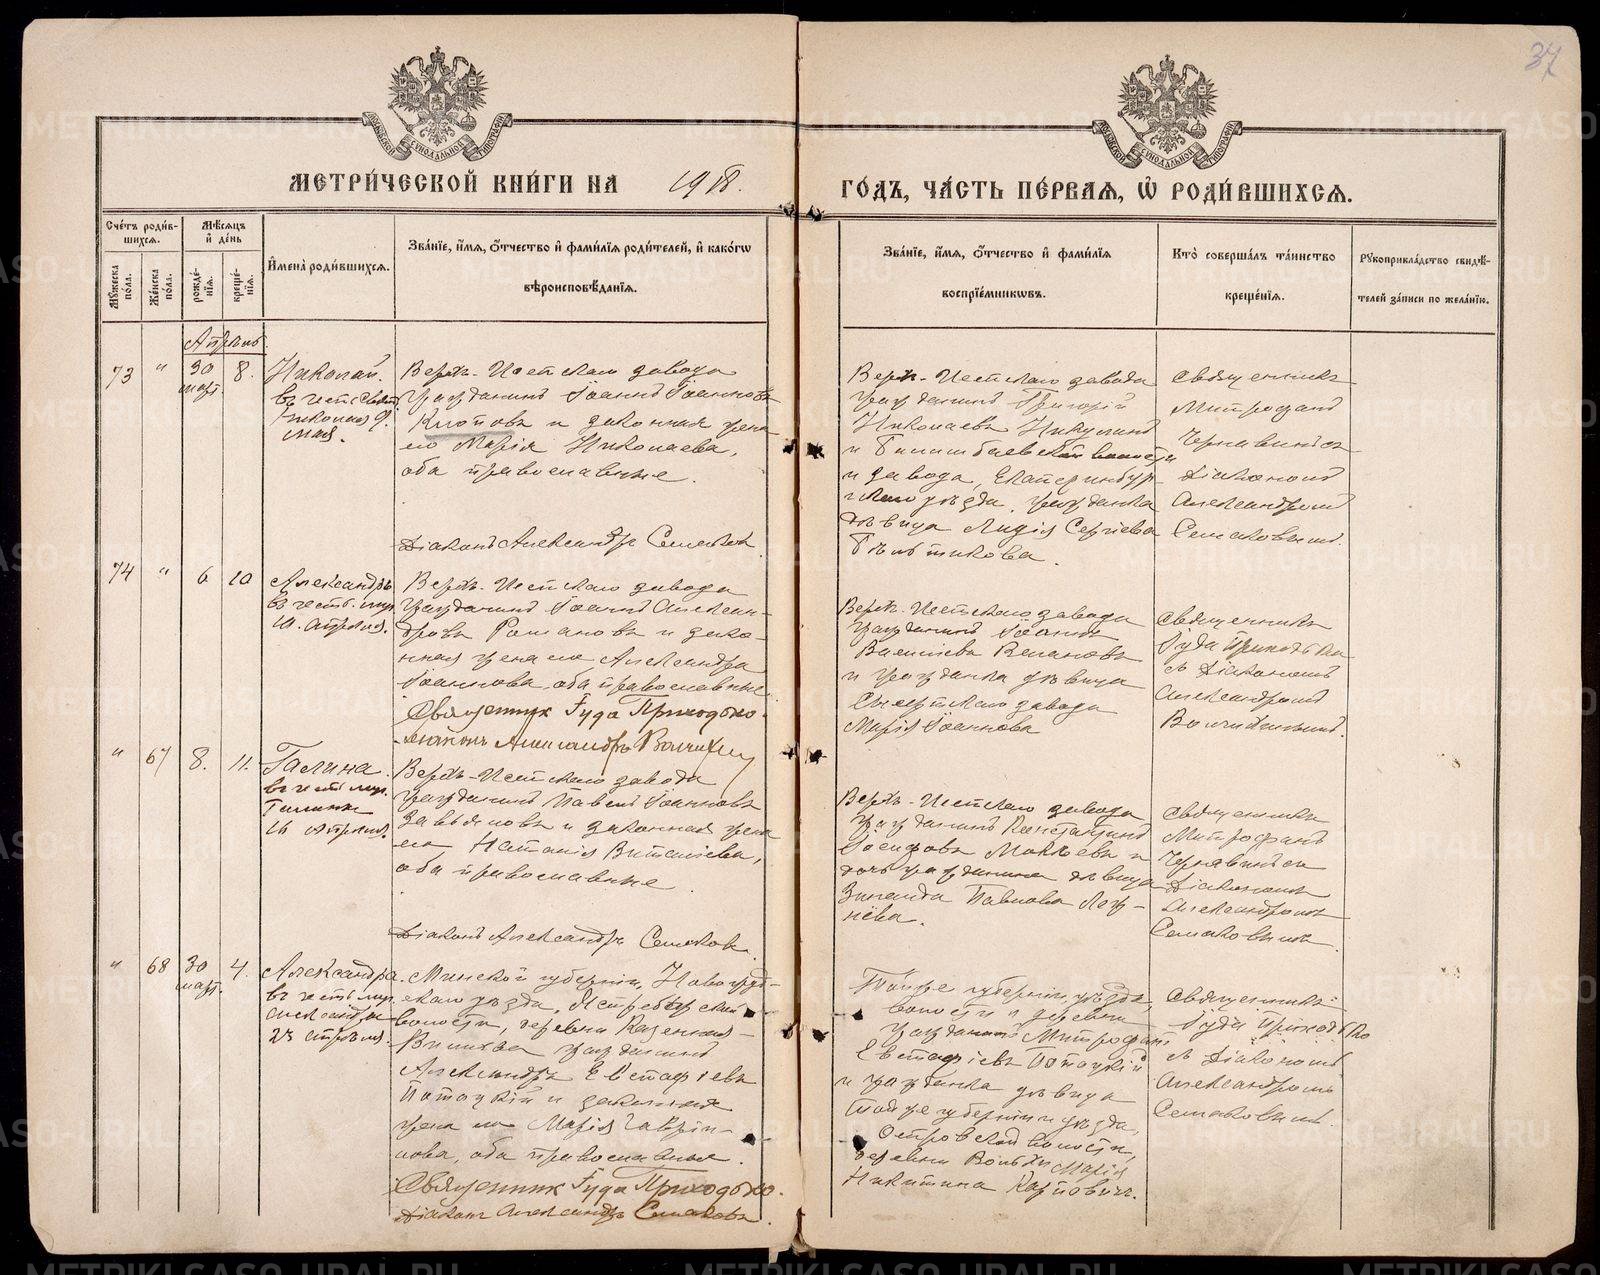 37
МЕТРИ́ЧЕСКОЙ КНИ́ГИ НА 1918.
ГО́ДЪ, ЧА́СТЬ ПЕ́РВАЯ, Ѡ҆ РОДИ́ВШИХСЯ.
Сче́тъ роди́вшихся.
Мꙋ́жеска по́ла.
Же́нска по́ла.
Мѣ́сяцъ и҆ де́нь
рожде́нїя.
креще́нїя.
И҆мена̀ роди́вшихся.
Зва́нїе, и҆́мя, ѻ҆́тчество и҆ фами́лїя роди́телей, и҆ како́гѡ
вѣроисповѣ́данїя.
Зва́нїе, и҆́мя, ѻ҆́тчество и҆ фами́лїя
воспрїе́мникѡвъ.
Кто̀ соверша́лъ та́инство
креще́нїя.
Рꙋкоприкла́дство свидѣ́-
телей за́писи по жела́нїю.
Апрѣль.
73 " 30 март. 8.
Николай.
въ честь Свят.
Николая 9.
мая.
Верхъ-Исетскаго завода
гражданинъ Іоаннъ Іоанновъ
Клоповъ и законная жена
его Марія Николаева,
оба православные.
Діаконъ Александръ Семаковъ
Верх-Исетскаго завода
гражданинъ Григорій
Николаевъ Никулинъ
и завода, Екатеринбург-
скаго уѣзда, гражданка
дѣвица Лидія Сергіева
Священникъ
Митрофанъ
Чернавинъ съ
Діакономъ
Александромъ
Семаковымъ.
74 " 6 10
Александръ
въ честь муч.
10. апрѣля.
Верхъ-Исетскаго завода
гражданинъ Іоаннъ Алексан-
дровъ Романовъ и зако-
нная жена его Александра
Іоаннова, оба православные.
Священник Іуда Приходько.
Диаконъ Александръ Волчихин
Верх-Исетскаго завода
гражданинъ Іоаннъ
Васильевъ
и гражданка дѣвица
Сысертскаго завода
Марія Іоаннова
Священникъ
Іуда Приходько
съ Діакономъ
Александромъ
Волчихинымъ.
" 67 8. 11.
Галина.
въ честь муч.
Галины
16 апрѣля.
Верхъ-Исетскаго завода
гражданинъ Павелъ Іоанновъ
Завьяловъ и законная жена
его Наталія Виталіева,
оба православные.
Діаконъ Александръ Семаковъ
Верх-Исетскаго завода
гражданинъ Константинъ
Іосифовъ Мокѣевъ и
дочь гражданина дѣвица
Зинаида Павлова
Священникъ
Митрофанъ
Чернавинъ съ
Діакономъ
Александромъ
Семаковымъ.
" 68 30 март. 4.
Александра.
въ честь муч.
Александры
23 апрѣля.
Минской губерніи, Новогруд-
скаго уѣзда,
волости, деревни
гражданинъ
Александръ Евстафіевъ
Потоцкій и законная
жена его Марія Гаврі-
лова, оба православные.
Священник Іуда Приходько.
Діаконъ Александръ Семаковъ.
Той же губерніи, уѣзда,
волости и деревни
гражданинъ Митрофанъ
Евстафіевъ Потоцкій
и гражданка дѣвица
той же губерніи и уѣзда,
Островской волости,
деревни Марія
Никитина Карповичъ.
Священникъ
Іуда Приходько
съ Діакономъ
Александромъ
Семаковымъ.